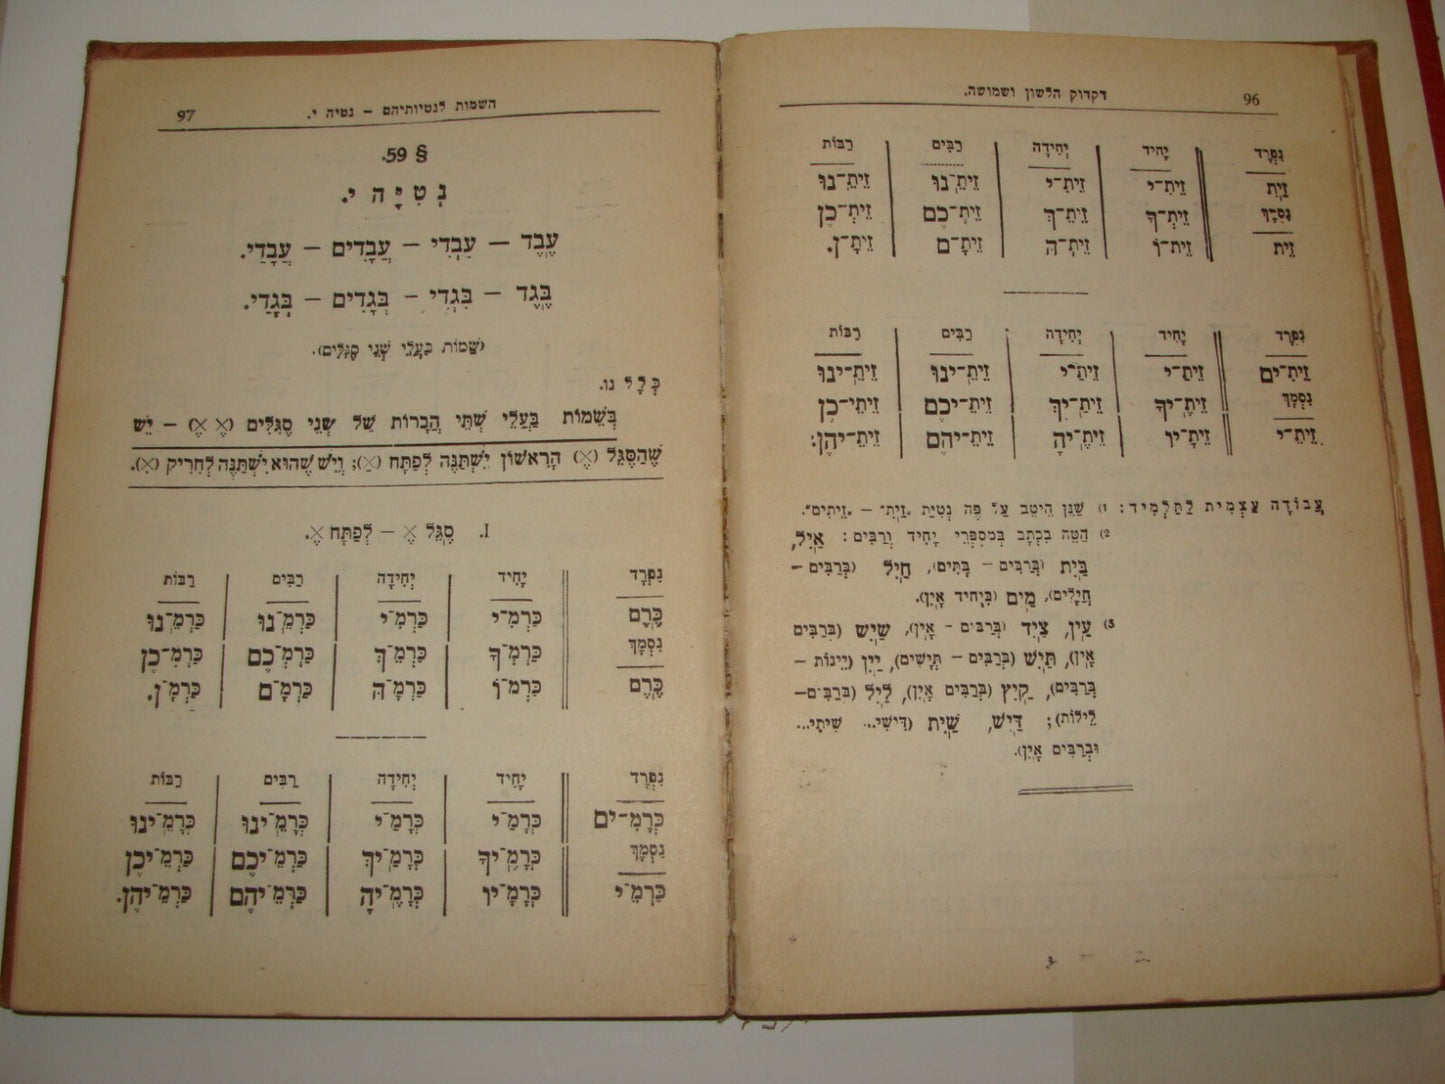 96 דקדוק הלשון ושמושה.
נִפְרָד יָחִיד יְחִידָה רַבִּים רַבּוֹת
זַיִת זֵיתִ־י זֵיתִ־י זֵיתֵ־נוּ זֵיתֵ־נוּ
נִסְמָךְ זֵיתְ־ךָ זֵיתֵ־ךְ זֵיתְ־כֶם זֵיתְ־כֶן
זֵית זֵית־וֹ זֵיתָ־הּ זֵיתָ־ם זֵיתָ־ן.
נִפְרָד יָחִיד יְחִידָה רַבִּים רַבּוֹת
זֵיתִ־ים זֵיתַ־י זֵיתַ־י זֵיתֵ־ינוּ זֵיתֵ־ינוּ
נִסְמָךְ זֵיתֶ־יךָ זֵיתַ־יִךְ זֵיתֵ־יכֶם זֵיתֵי־כֶן
זֵיתֵ־י זֵיתָ־יו זֵיתֶ־יהָ זֵיתֵ־יהֶם זֵיתֵ־יהֶן:
עֲבוֹדָה עַצְמִית לַתַּלְמִיד: 1) שַׁנֵּן הֵיטֵב עַל פֶּה נְטִיַּת „זַיִת” – „זֵיתִים”.
2) הַטֵּה בִּכְתָב בְּמִסְפְּרֵי יָחִיד וְרַבִּים: אַיִל,
בַּיִת (בְּרַבִּים – בָּתִּים), חַיִל (בְּרַבִּים –
חֲיָלִים), מַיִם (בְּיָחִיד אָיִן).
3) עַיִן, צַיִד (בְּרַבִּים – אָיִן), שַׁיִשׁ (בְּרַבִּים
אָיִן), תַּיִשׁ (בְּרַבִּים – תְּיָשִׁים), יַיִן (יֵינוֹת –
בְּרַבִּים), קַיִץ (בְּרַבִּים אָיִן), לַיִל (בְּרַבִּים–
לֵילוֹת); דַּיִשׁ, שַׁיִת (דִּישִׁי... שִׁיתִי...
וּבְרַבִּים אָיִן).
השמות לנטיותיהם – נטיה י. 97
§ 59.
נְטִיָּה י.
עֶבֶד – עַבְדִּי – עֲבָדִים – עֲבָדַי.
בֶּגֶד – בִּגְדִי – בְּגָדִים – בְּגָדַי.
(שֵׁמוֹת בַּעֲלֵי שְׁנֵי סֶגֹלִים).
כְּלָל נו.
בְּשֵׁמוֹת בַּעֲלֵי שְׁתֵּי הֲבָרוֹת שֶׁל שְׁנֵי סֶגֹלִים (×ֶ ×ֶ) – יֵשׁ
שֶׁהַסֶּגֹל (×ֶ) הָרִאשׁוֹן יִשְׁתַּנֶּה לְפַתָּח (×ַ); וְיֵשׁ שֶׁהוּא יִשְׁתַּנֶּה לְחִרִיק (×ִ).
I. סֶגֹל ×ֶ – לְפַתָּח ×ַ.
נִפְרָד יָחִיד יְחִידָה רַבִּים רַבּוֹת
כֶּרֶם כַּרְמִ־י כַּרְמִ־י כַּרְמֵ־נוּ כַּרְמֵ־נוּ
נִסְמָךְ כַּרְמְ־ךָ כַּרְמֵ־ךְ כַּרְמְ־כֶם כַּרְמְ־כֶן
כֶּרֶם כַּרְמ־וֹ כַּרְמָ־הּ כַּרְמָ־ם כַּרְמָ־ן.
נִפְרָד יָחִיד יְחִידָה רַבִּים רַבּוֹת
כְּרָמִ־ים כְּרָמַ־י כְּרָמַ־י כְּרָמֵ־ינוּ כְּרָמֵ־ינוּ
נִסְמָךְ כְּרָמֶ־יךָ כְּרָמַ־יִךְ כַּרְמֵ־יכֶם כַּרְמֵ־יכֶן
כַּרְמֵ־י כְּרָמָ־יו כְּרָמֶ־יהָ כַּרְמֵ־יהֶם כַּרְמֵ־יהֶן.